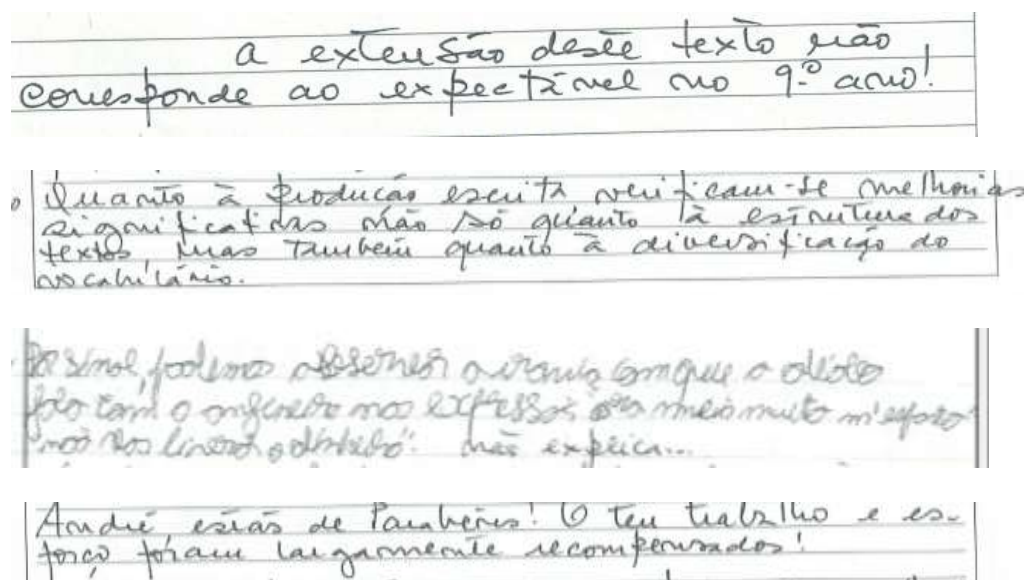 A extensão deste texto não
corresponde ao expectável no 9.º ano!
Quanto à produção escrita verificam-se melhorias
significativas não só quanto à estrutura dos
textos, mas também quanto à diversificação do
vocabulário.
Por sinal, podemos observar a ironia com que o diabo
fala com o onzeneiro nas expressões "ora mui muito m'espanto
nom vos livrar o dinheiro". Não explica...
André estás de Parabéns! O teu trabalho e es-
forço foram largamente recompensados!